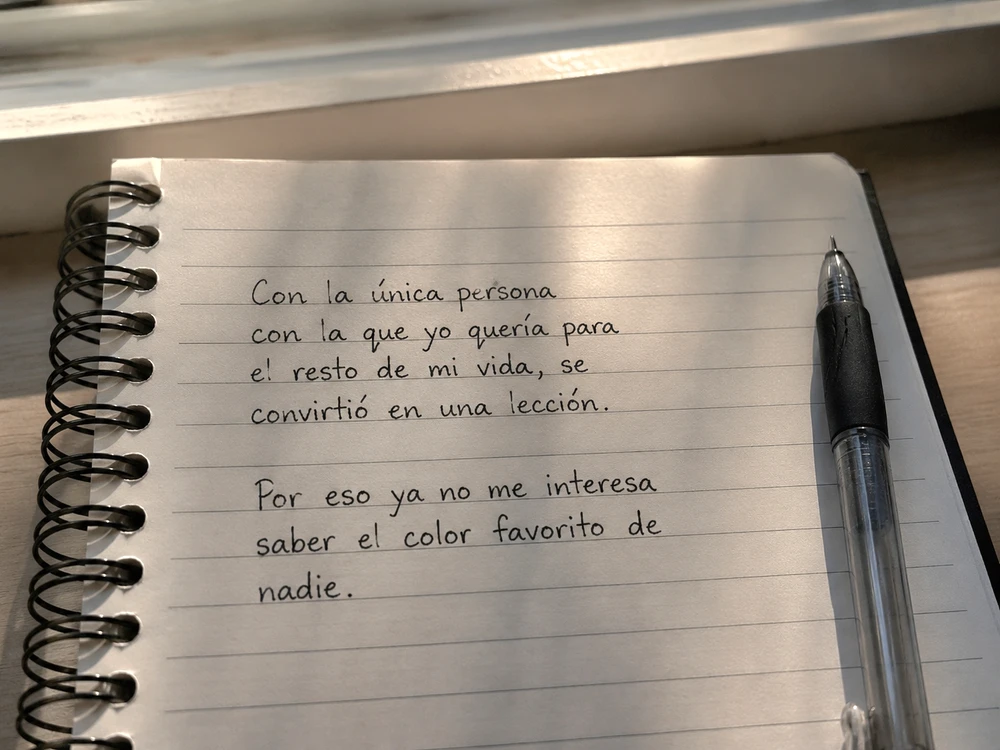 Con la única persona
con la que yo quería para
el resto de mi vida, se
convirtió en una lección.
Por eso ya no me interesa
saber el color favorito de
nadie.